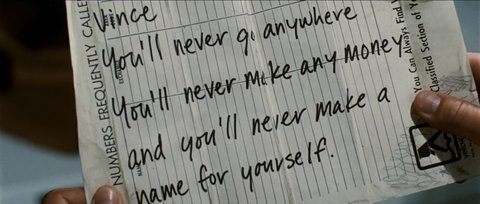 Vince
You'll never go anywhere
You'll never make any money
and you'll never make a
name for yourself.
NUMBERS FREQUENTLY CALLE
You Can Always Find
Classified Section of Yo